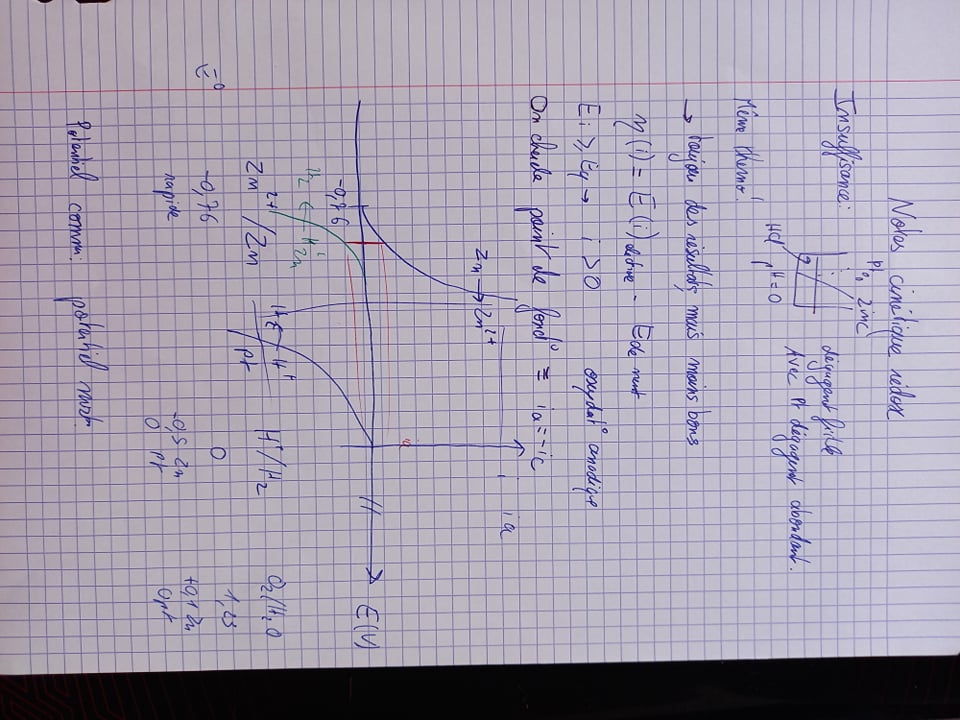 Notes cinétique rédox
Insuffisance:
Pt, zinc
HCl
pH=0
dégagent faible
Avec Pt dégagent abondant.
Même thermo!
→ toujou des résultats, mais moins bons
η(i) = E(i) - E
Ei ≥ Eq → i > 0 oxydat° anodique
On cherche point de fonct° ≡ ia = -ic
Zn → Zn2+
ia
-0,76
E(V)
H2 ← H+
Zn
H2 ← H+
/Pt
Zn2+/Zn
H+/H2
O2/H2O
E0
-0,76
0
1,23
rapide
-0,5 Zn
0 Pt
+0,1 Zn
0 pt
Potentiel comm: potentiel mixt.